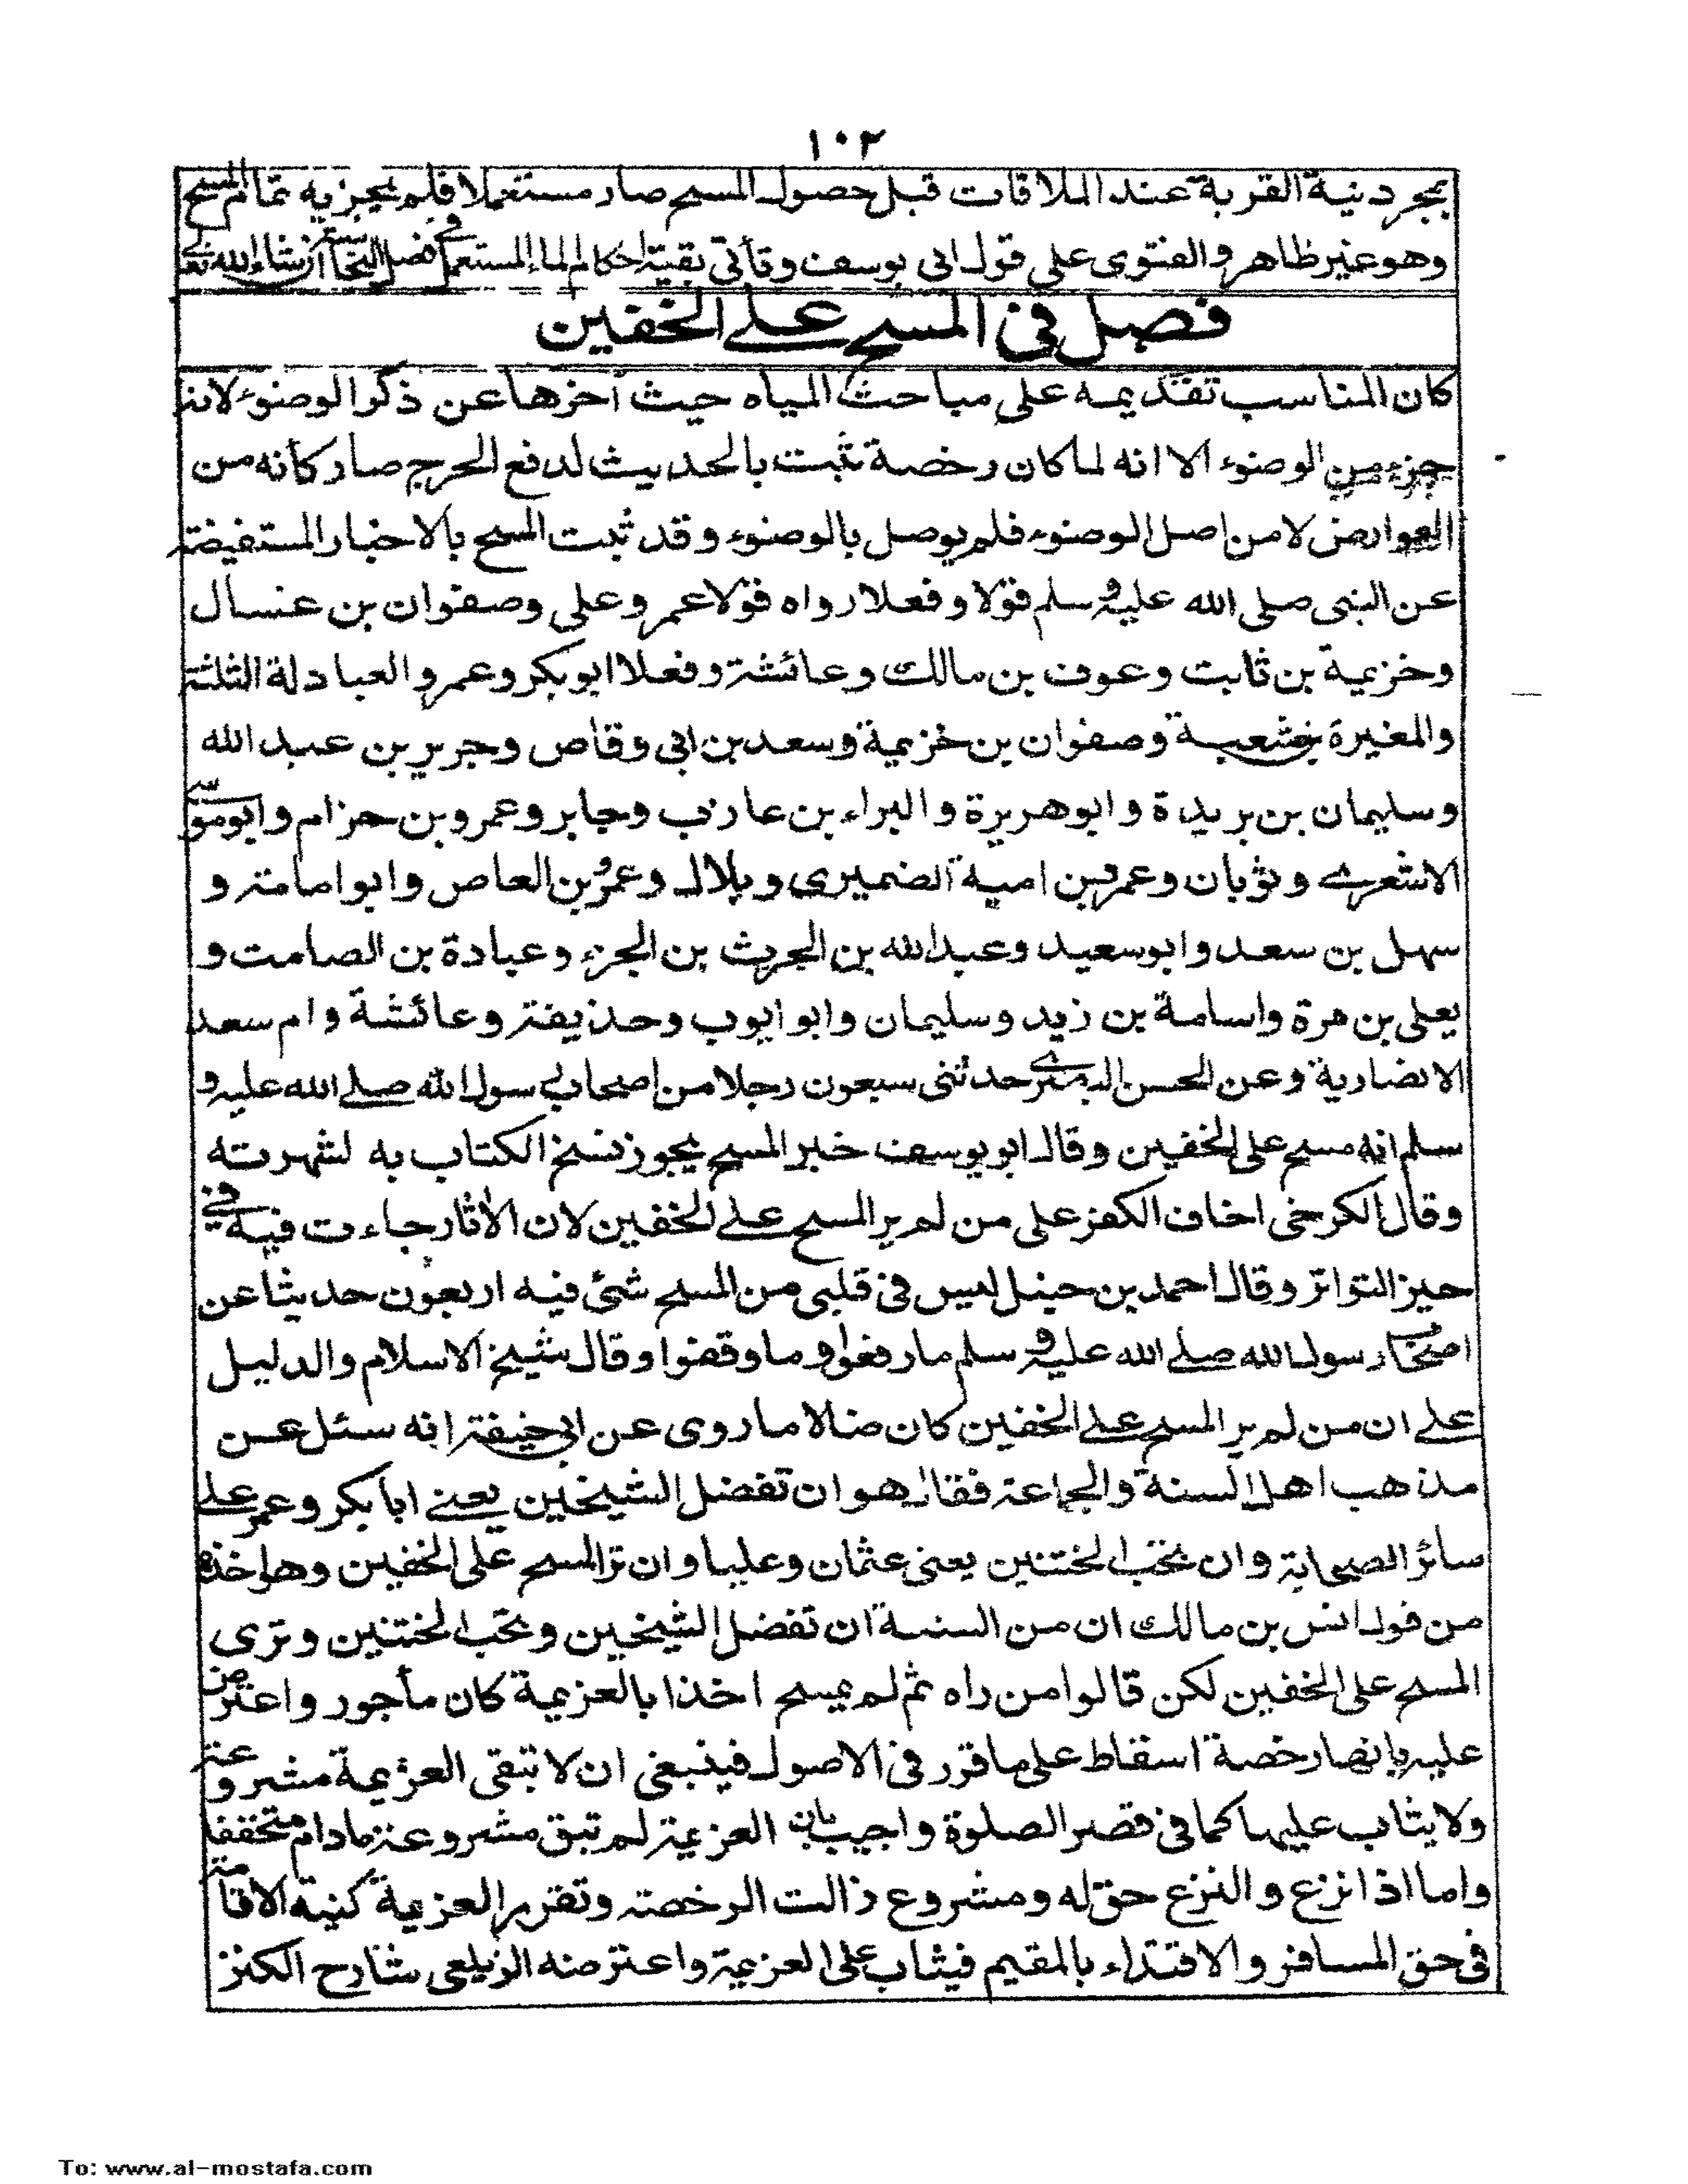 ١٠٢
بمجرد نية القربة عند الملاقات قبل حصول المسح صار مستعملا فلم يجز به تمام المسح
وهو غير ظاهر والفتوى على قول ابى يوسف وتأتى بقية احكام الماء المستعمل فى فصل النجاسة ان شاء الله تعالى
فصل فى المسح على الخفين
كان المناسب تقديمه على مباحث المياه حيث أخرها عن ذكر الوضوء لانه
جزء من الوضوء الا انه لما كان رخصة ثبت بالحديث لدفع الحرج صار كأنه من
العوارض لا من اصل الوضوء فلم يوصل بالوضوء وقد ثبت المسح بالاخبار المستفيضة
عن النبى صلى الله عليه وسلم قولا وفعلا رواه قولا عمر وعلى وصفوان بن عسال
وخزيمة بن ثابت وعوف بن مالك وعائشة وفعلا ابو بكر وعمر والعبادلة الثلثة
والمغيرة بن شعبة وصفوان بن خزيمة وسعد بن ابى وقاص وجرير بن عبد الله
وسليمان بن بريدة وابو هريرة والبراء بن عازب وجابر وعمرو بن حزام وابو موسى
الاشعرى وثوبان وعمرو بن امية الضميرى وبلال وعمرو بن العاص وابو امامة و
سهل بن سعد وابو سعيد وعبد الله بن الحرث بن الجزء وعبادة بن الصامت و
يعلى بن مرة واسامة بن زيد وسليمان وابو ايوب وحذيفة وعائشة وام سعد
الانصارية وعن الحسن البصرى حدثنى سبعون رجلا من اصحاب رسول الله صلى الله عليه و
سلم انه مسح على الخفين وقال ابو يوسف خبر المسح يجوز نسخ الكتاب به لشهرته
وقال الكرخى اخاف الكفر على من لم ير المسح على الخفين لان الأثار جاءت فيه فى
حيز التواتر وقال احمد بن حنبل ليس فى قلبى من المسح شئ فيه اربعون حديثا عن
اصحاب رسول الله صلى الله عليه وسلم ما رفعوا وما وقفوا وقال شيخ الاسلام والدليل
على ان من لم ير المسح على الخفين كان ضالا ما روى عن ابى حنيفة انه سئل عن
مذهب اهل السنة والجماعة فقال هو ان تفضل الشيخين يعنى ابا بكر وعمر على
سائر الصحابة وان تحب الختنين يعنى عثمان وعليا وان ترى المسح على الخفين وهذا اخذه
من قول انس بن مالك ان من السنة ان تفضل الشيخين وتحب الختنين وترى
المسح على الخفين لكن قالوا من راه ثم لم يمسح اخذا بالعزيمة كان مأجور واعترض
عليه بانها رخصة اسقاط على ما قرر فى الاصول فينبغى ان لا تبقى العزيمة مشروعة
ولا يثاب عليها كما فى قصر الصلوة واجيب بان العزيمة لم تبق مشروعة مادام متخففا
واما اذا نزع والنزع حق له ومشروع زالت الرخصة وتقرير العزيمة كنية الاقامة
فى حق المسافر والاقتداء بالمقيم فيثاب على العزيمة واعترضه الزيلعى شارح الكنز
To: www.al-mostafa.com